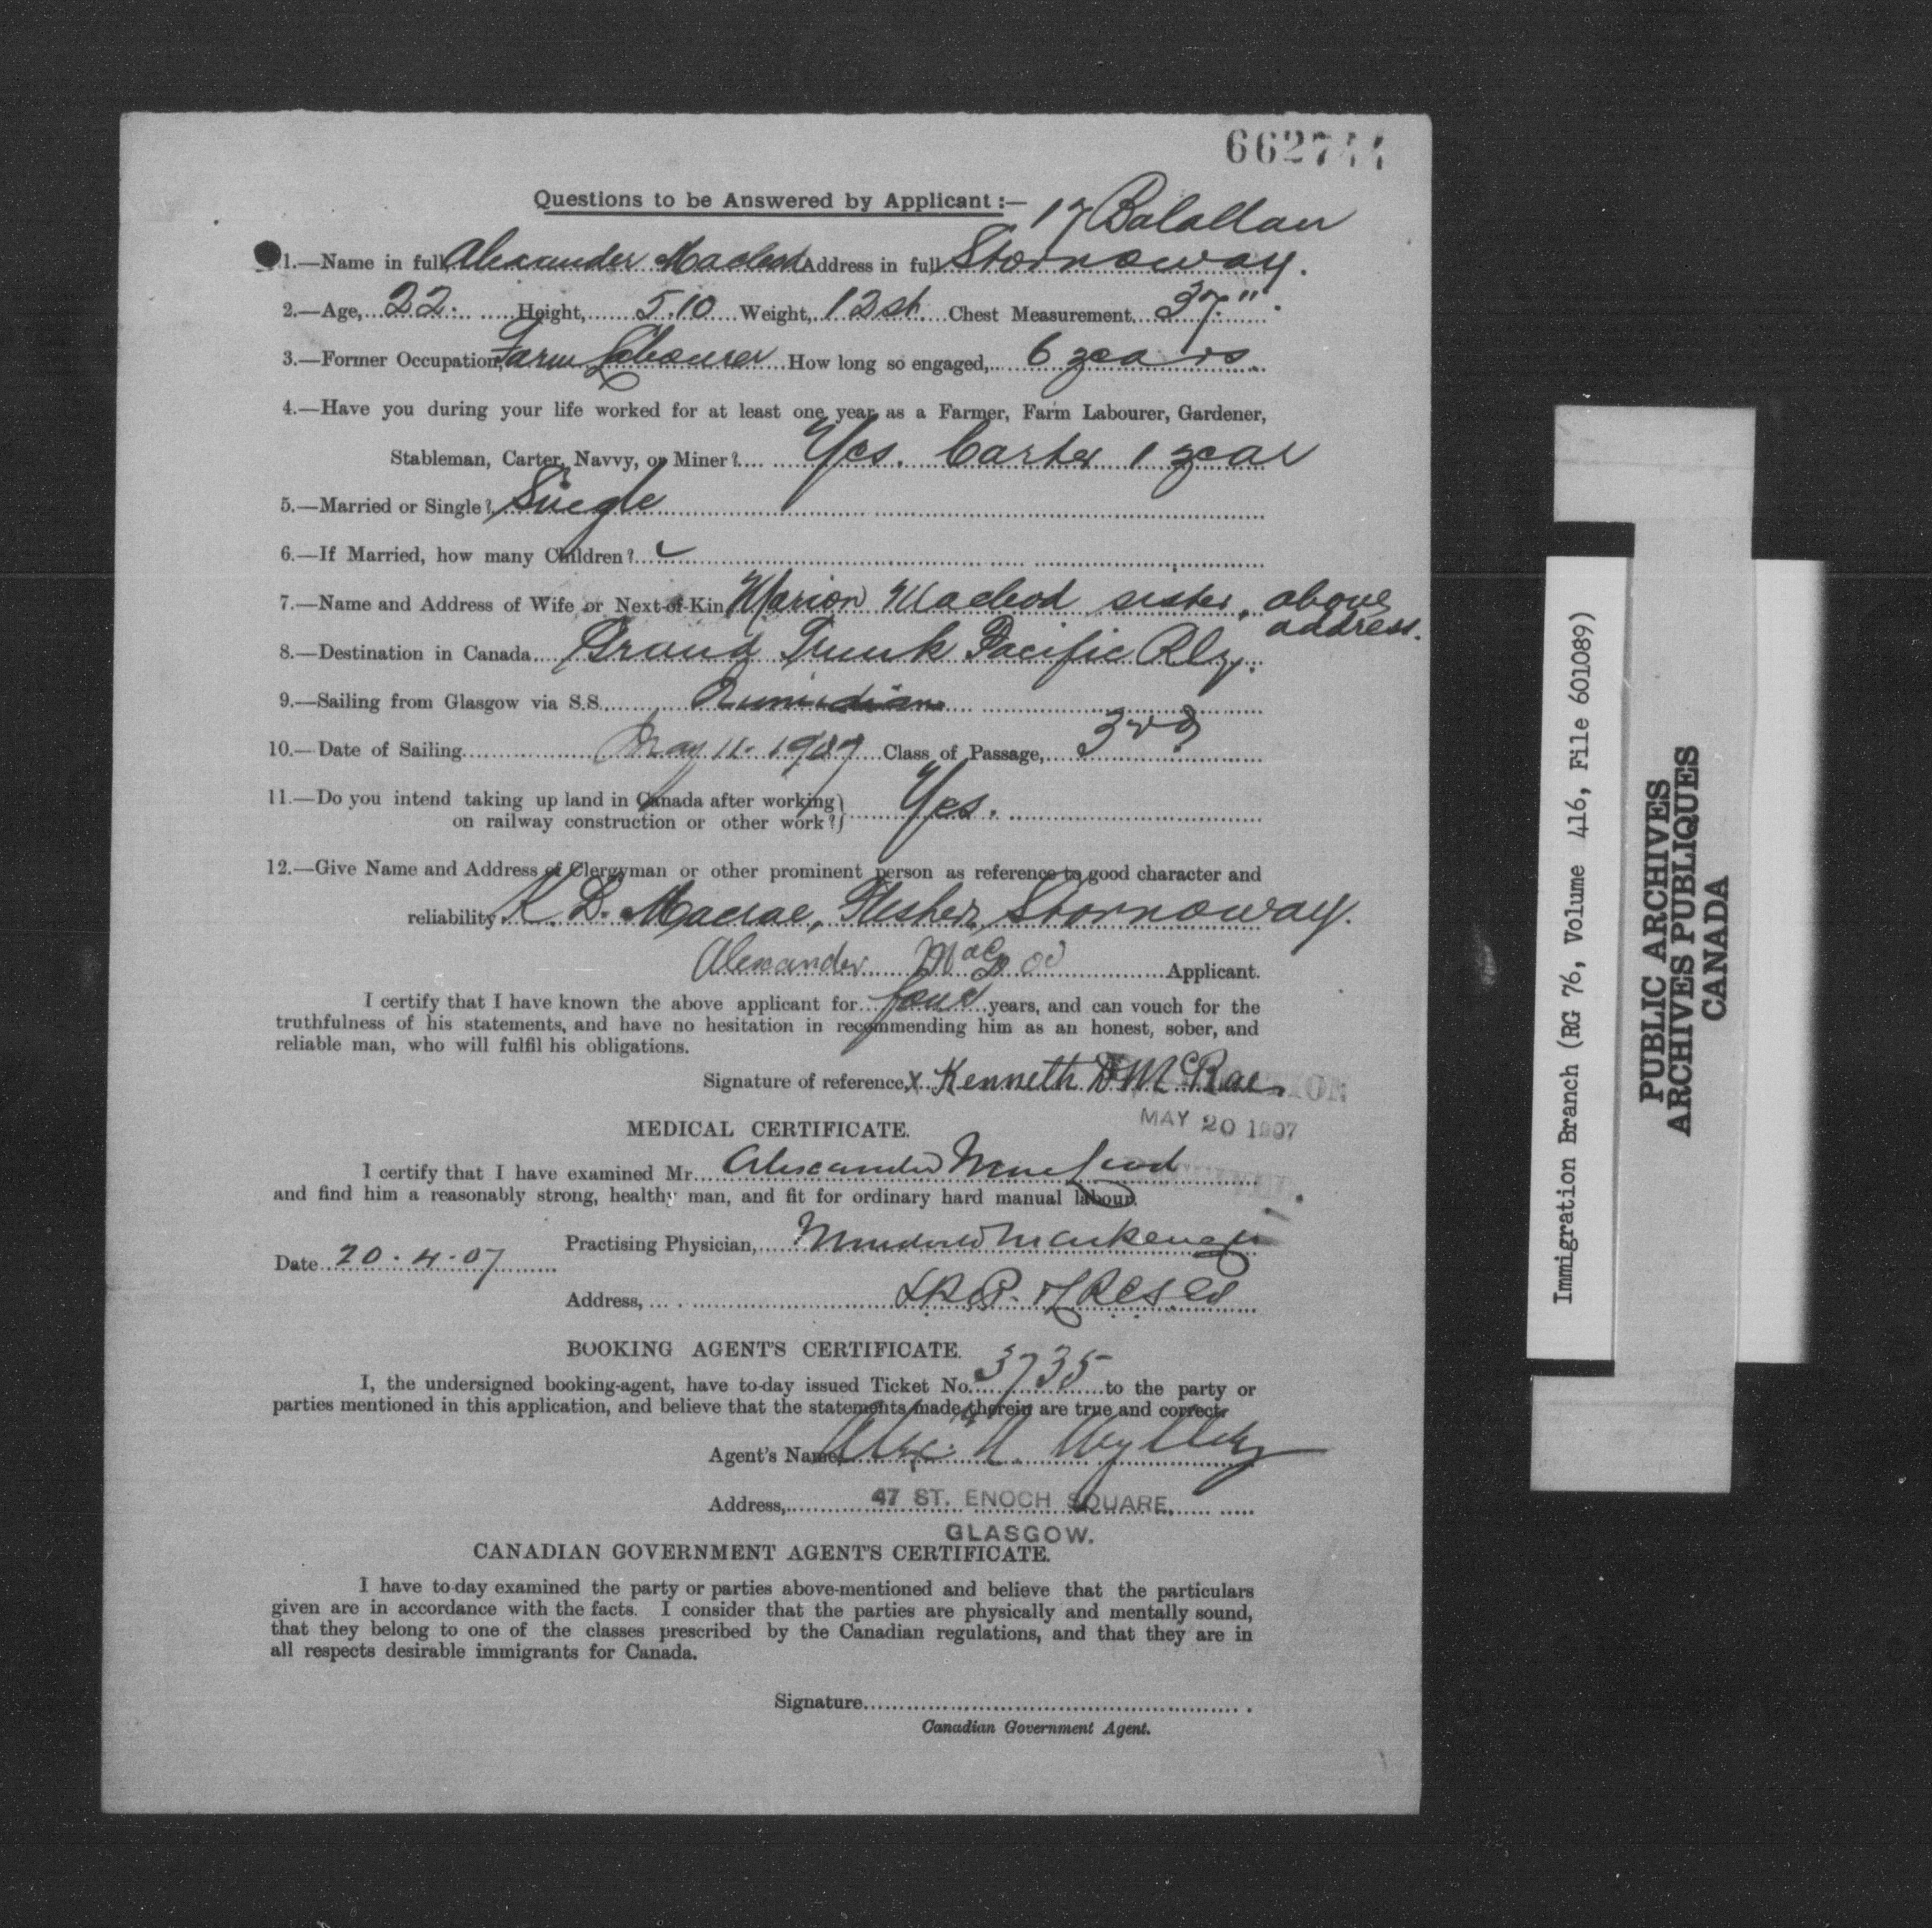 662744
Questions to be Answered by Applicant :—
17 Balallan
1.—Name in full, Alexander Macleod Address in full Stornoway.
2.—Age, 22. Height, 5.10 Weight, 12 st. Chest Measurement 37."
3.—Former Occupation, Farm Labourer How long so engaged, 6 years.
4.—Have you during your life worked for at least one year as a Farmer, Farm Labourer, Gardener,
Stableman, Carter, Navvy, or Miner? Yes. Carter 1 year
5.—Married or Single? Single
6.—If Married, how many Children?
7.—Name and Address of Wife or Next-of-Kin, Marion Macleod sister, above
address.
8.—Destination in Canada Grand Trunk Pacific Rly.
9.—Sailing from Glasgow via S.S. Numidian
10.—Date of Sailing May 11. 1907 Class of Passage, 3rd
11.—Do you intend taking up land in Canada after working
on railway construction or other work? Yes.
12.—Give Name and Address of Clergyman or other prominent person as reference to good character and
reliability K. D. Macrae, Flesher, Stornoway.
Alexander MacLeod Applicant.
I certify that I have known the above applicant for four years, and can vouch for the
truthfulness of his statements, and have no hesitation in recommending him as an honest, sober, and
reliable man, who will fulfil his obligations.
Signature of reference, x Kenneth D McRae
MAY 20 1907
MEDICAL CERTIFICATE.
I certify that I have examined Mr. Alexander MacLeod
and find him a reasonably strong, healthy man, and fit for ordinary hard manual labour.
Practising Physician, Murdo Mackenzie
Date 20.4.07
Address, L.R.C.P. & L.R.C.S. Ed
BOOKING AGENT'S CERTIFICATE.
I, the undersigned booking-agent, have to-day issued Ticket No. 3735 to the party or
parties mentioned in this application, and believe that the statements made therein are true and correct.
Agent's Name,
Address, 47 ST. ENOCH SQUARE,
GLASGOW.
CANADIAN GOVERNMENT AGENT'S CERTIFICATE.
I have to-day examined the party or parties above-mentioned and believe that the particulars
given are in accordance with the facts. I consider that the parties are physically and mentally sound,
that they belong to one of the classes prescribed by the Canadian regulations, and that they are in
all respects desirable immigrants for Canada.
Signature
Canadian Government Agent.
Immigration Branch (RG 76, Volume 416, File 601089)
PUBLIC ARCHIVES
ARCHIVES PUBLIQUES
CANADA